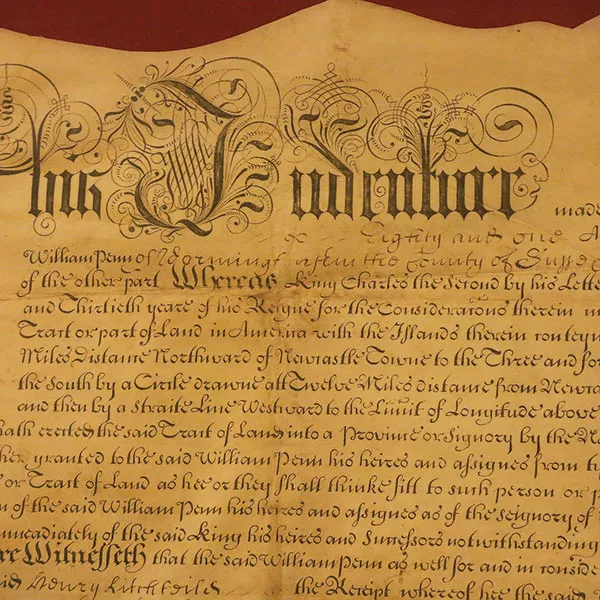 This Indenture made
Eighty and one A
William Penn of Worminghurst in the County of Susse
of the other part Whereas King Charles the Second by his Lette
and Thirtieth yeare of his Reigne for the Consideracons therein m
Tract or part of Land in America with the Islands therein conteyn
Miles Distance Northward of Newcastle Towne to the Three and for
the South by a Circle drawne att Twelve Miles distance from Newca
and then by a Straite Line Westward to the Limit of Longitude above
hath erected the said Tract of Land into a Province or Signory by the Na
her granted to the said William Penn his heires and assignes from ty
or Tract of Land as hee or they shall thinke fitt to such person or p
of the said William Penn his heires and assignes as of the seignory of
mmediately of the said King his heires and Successors notwithstanding
Witnesseth that the said William Penn as well for and in conside
Henry the Receipt whereof hee the said